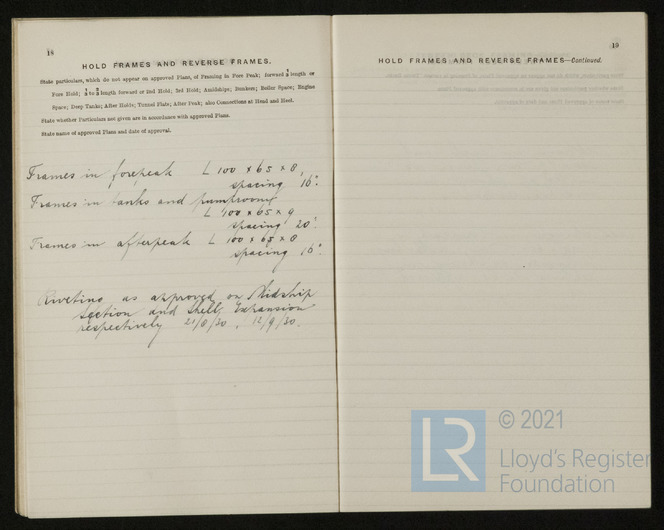 18
HOLD FRAMES AND REVERSE FRAMES.
State particulars, which do not appear on approved Plans, of Framing in Fore Peak; forward ¼ length or
Fore Hold; length forward or 2nd Hold; 3rd Hold; Amidships; Bunkers; Boiler Space; Engine
Space; Deep Tanks; After Holds; Tunnel Flats; After Peak; also Connections at Head and Heel.
State whether Particulars not given are in accordance with approved Plans.
State name of approved Plans and date of approval.
Frames in forepeak L 100 x 65 x 8,
spacing 16".
Frames in tanks and pumprooms
L 100 x 65 x 9
spacing 20".
Frames in afterpeak L 100 x 65 x 8
spacing 16".
Riveting as approved on Midship
Section and Shell Expansion
respectively 21/8/30, 12/9/30.
19
HOLD FRAMES AND REVERSE FRAMES—Continued.
LR
© 2021
Lloyd's Register
Foundation